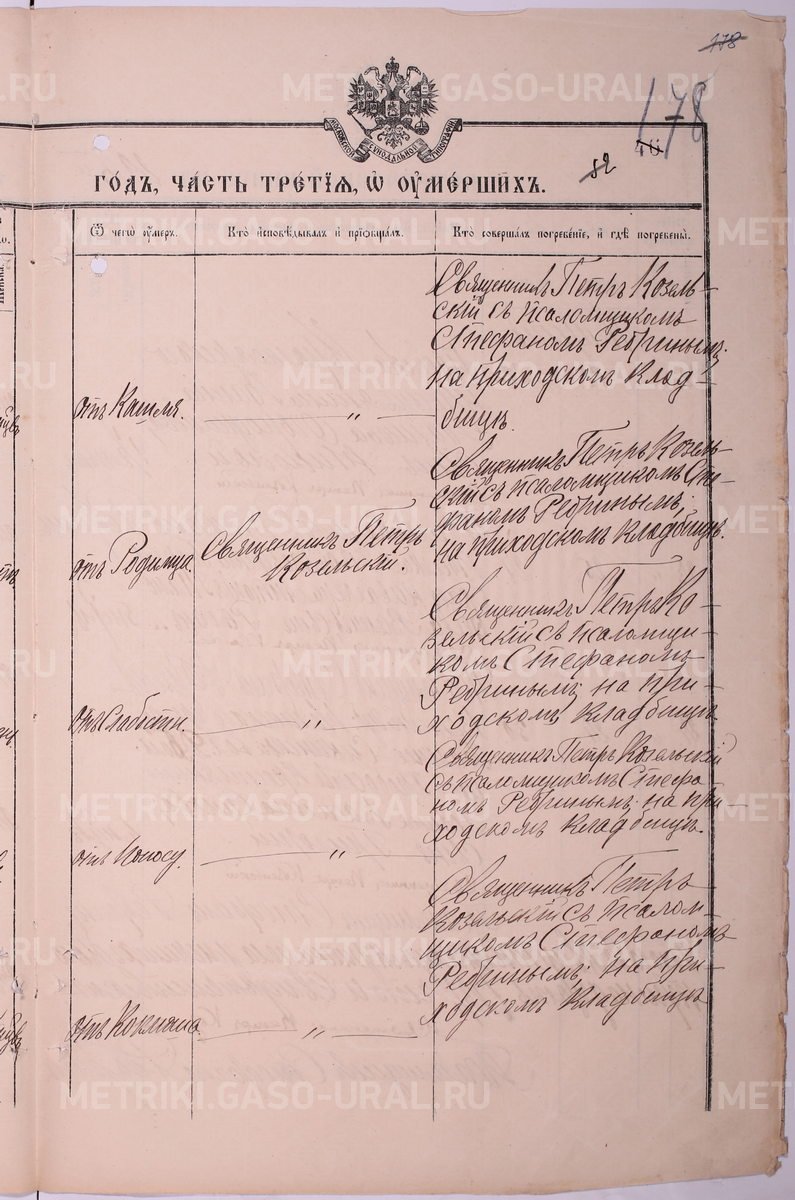 178
178
МОСКОВСКОЙ СѴНОДАЛЬНОЙ ТИПОГРАФІИ
82
ГО́ДЪ, ЧА́СТЬ ТРЕ́ТІѦ, Ѡ ОУ҆МЕ́РШИХЪ.
Ѿ чегѡ̀ оу҆́меръ.
Кто̀ и҆сповѣ́дывалъ и҆ прїѡбща́лъ.
Кто̀ соверша́лъ погребе́нїе, и҆ гдѣ̀ погребены̀.
отъ Кашля.
〃
Священникъ Петръ Козель-
скій съ псаломщикомъ
Стефаномъ Ребринымъ.
на приходскомъ клад-
бищѣ.
отъ Родимца.
Священникъ Петръ
Козельскій.
Священникъ Петръ Козель-
скій съ псаломщикомъ Сте-
фаномъ Ребринымъ;
на приходскомъ кладбищѣ.
отъ Слабости.
〃
Священникъ Петръ Ко-
зельскій съ псаломщи-
комъ Стефаномъ
Ребринымъ; на при-
ходскомъ кладбищѣ
отъ Поносу.
〃
Священникъ Петръ Козельскій
съ псаломщикомъ Стефа-
номъ Ребринымъ; на при-
ходскомъ кладбищѣ.
отъ Коклюша.
〃
Священникъ Петръ
Козельскій съ псалом-
щикомъ Стефаномъ
Ребринымъ; на при-
ходскомъ кладбищѣ
METRIKI.GASO-URAL.RU